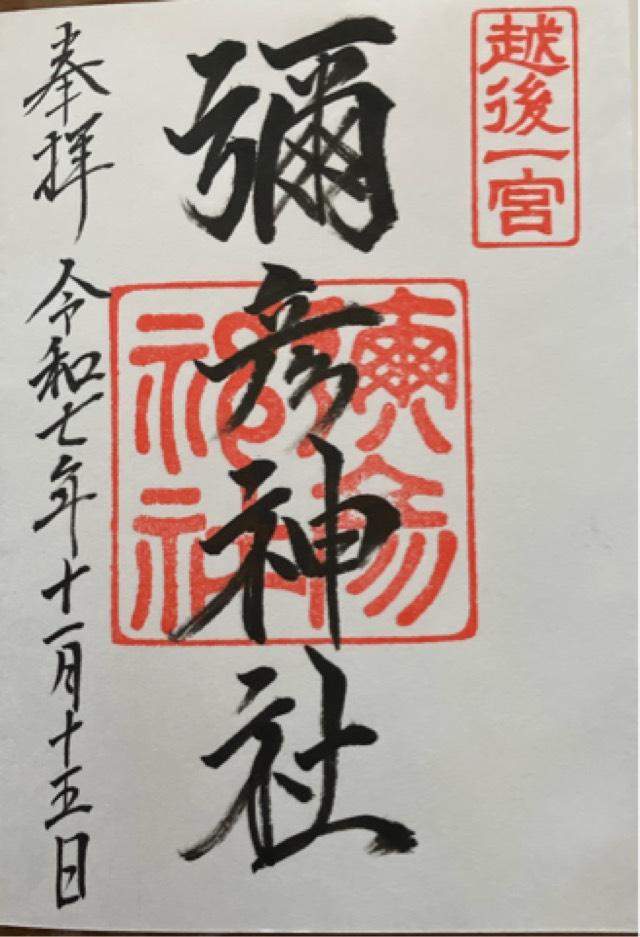 越後一宮
彌彦神社
彌彦神社
奉拝 令和七年十一月十五日